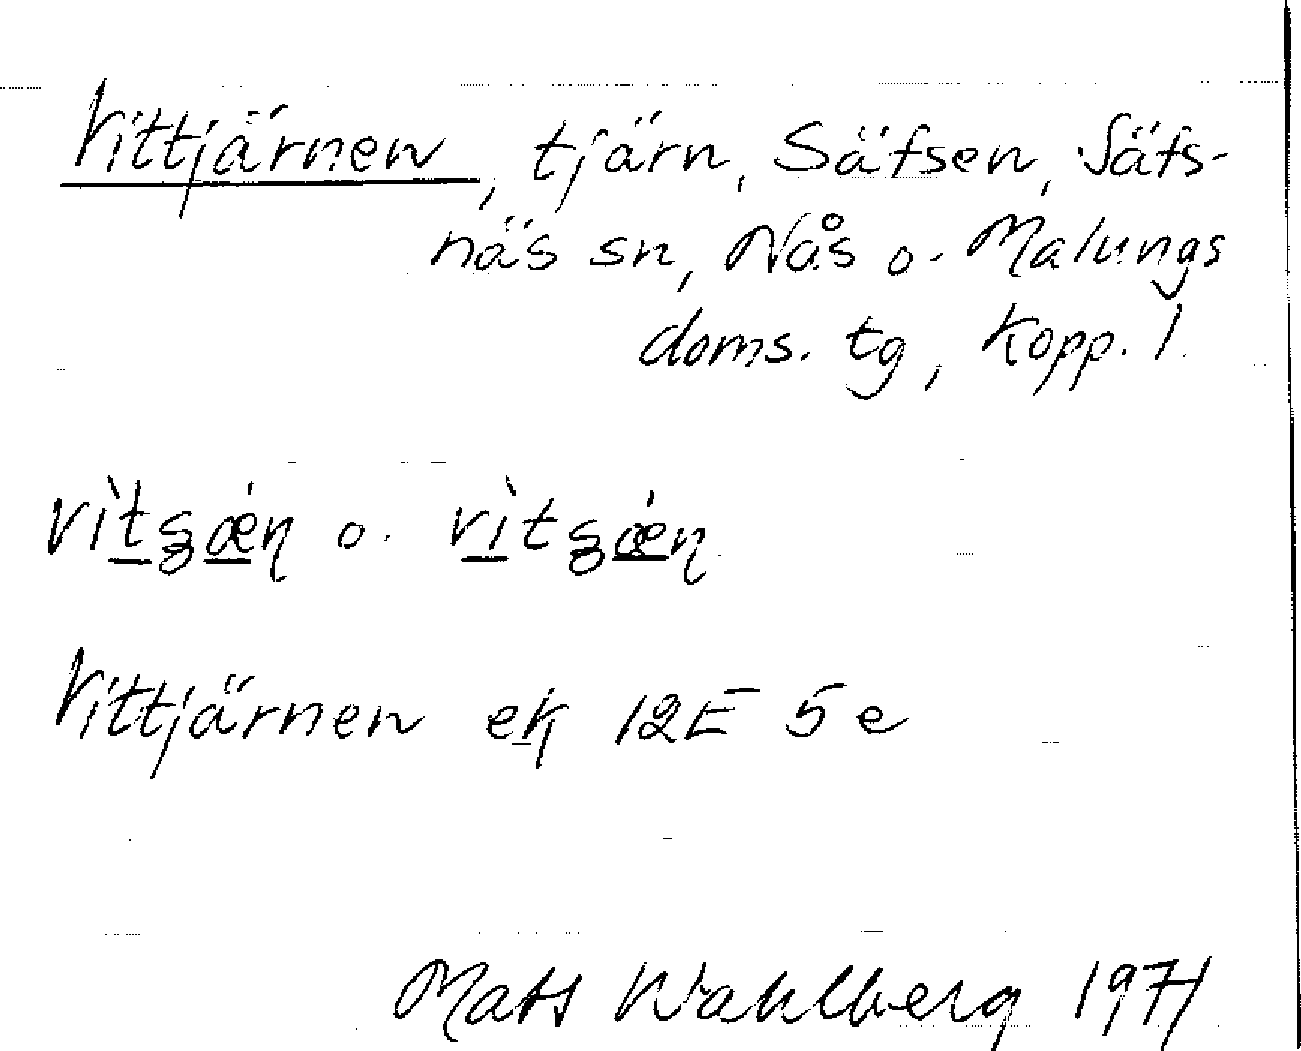 Vittjärnen, tjärn, Säfsen, Säfs-
näs sn, Nås o. Malungs
doms. tg, Kopp. l.
o.
Vittjärnen ek 12E 5e
Mats Wahlberg 1971